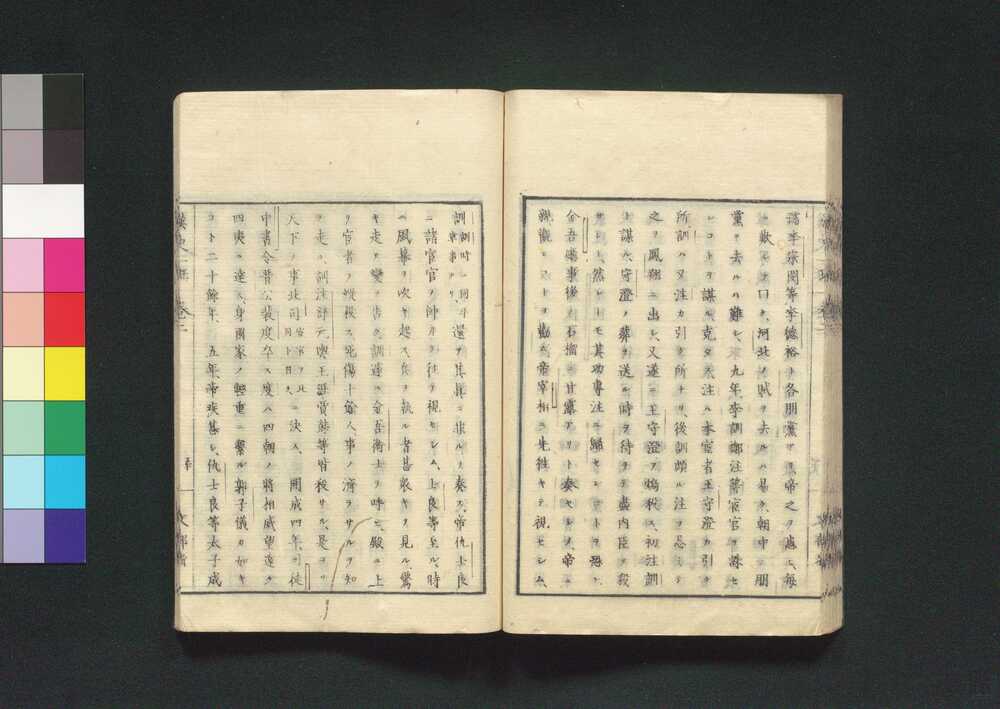 李宗閔等李德裕ト各朋黨ヲ為帝之ヲ患ヘ毎
ニ歎シテ曰ク、河北ノ賊ヲ去ルハ易ク、朝中ノ朋
黨ヲ去ルハ難シ、九年、李訓鄭注等宦官ヲ誅セ
ンコトヲ謀ル、克タス、注ハ本宦者王守澄カ引ク
所、訓ハ又注カ引ク所ナリ、後訓頗ル注ヲ忌ミテ
之ヲ鳳翔ニ出シ、又遂ニ王守澄ヲ鴆殺ス、初注訓
ト謀ル、守澄ノ葬ヲ送ル時ヲ待テ盡内臣ヲ殺
サント、然レトモ其功專注ニ歸センコトヲ恐レ
金吾聽事後ノ石榴ニ甘露アリト奏セシメ、帝ニ
親覩センコトヲ勸ム、帝宰相ニ先往キテ視セシム、
訓時ニ同平章事タリ還テ其真ニ非ルヲ奏ス、帝仇士良
ニ諸宦官ヲ帥ヰテ往テ視セシム、士良等至ル、時
ニ風幕ヲ吹キ起ス、兵ヲ執ル者甚衆キヲ見ル、驚
キ走テ變ヲ告ク、訓遽ニ金吾衛士ヲ呼ヒ、殿ニ上
リ宦者ヲ撃殺ス、死傷十餘人、事ノ濟ラサルヲ知
テ走ル、訓注舒元輿王涯賈餗等皆殺サル、是ヨリ
天下ノ事北司宦官ヲ北司ト曰フニ決ス、開成四年、司徒
中書令晉公裴度卒ス、度ハ四朝ノ將相威望遠ク
四夷ニ達ス、身國家ノ輕重ニ繫ル、郭子儀カ如キ
コト二十餘年、五年、帝疾甚シ、仇士良等太子成
漢史一斑 卷三
文部省